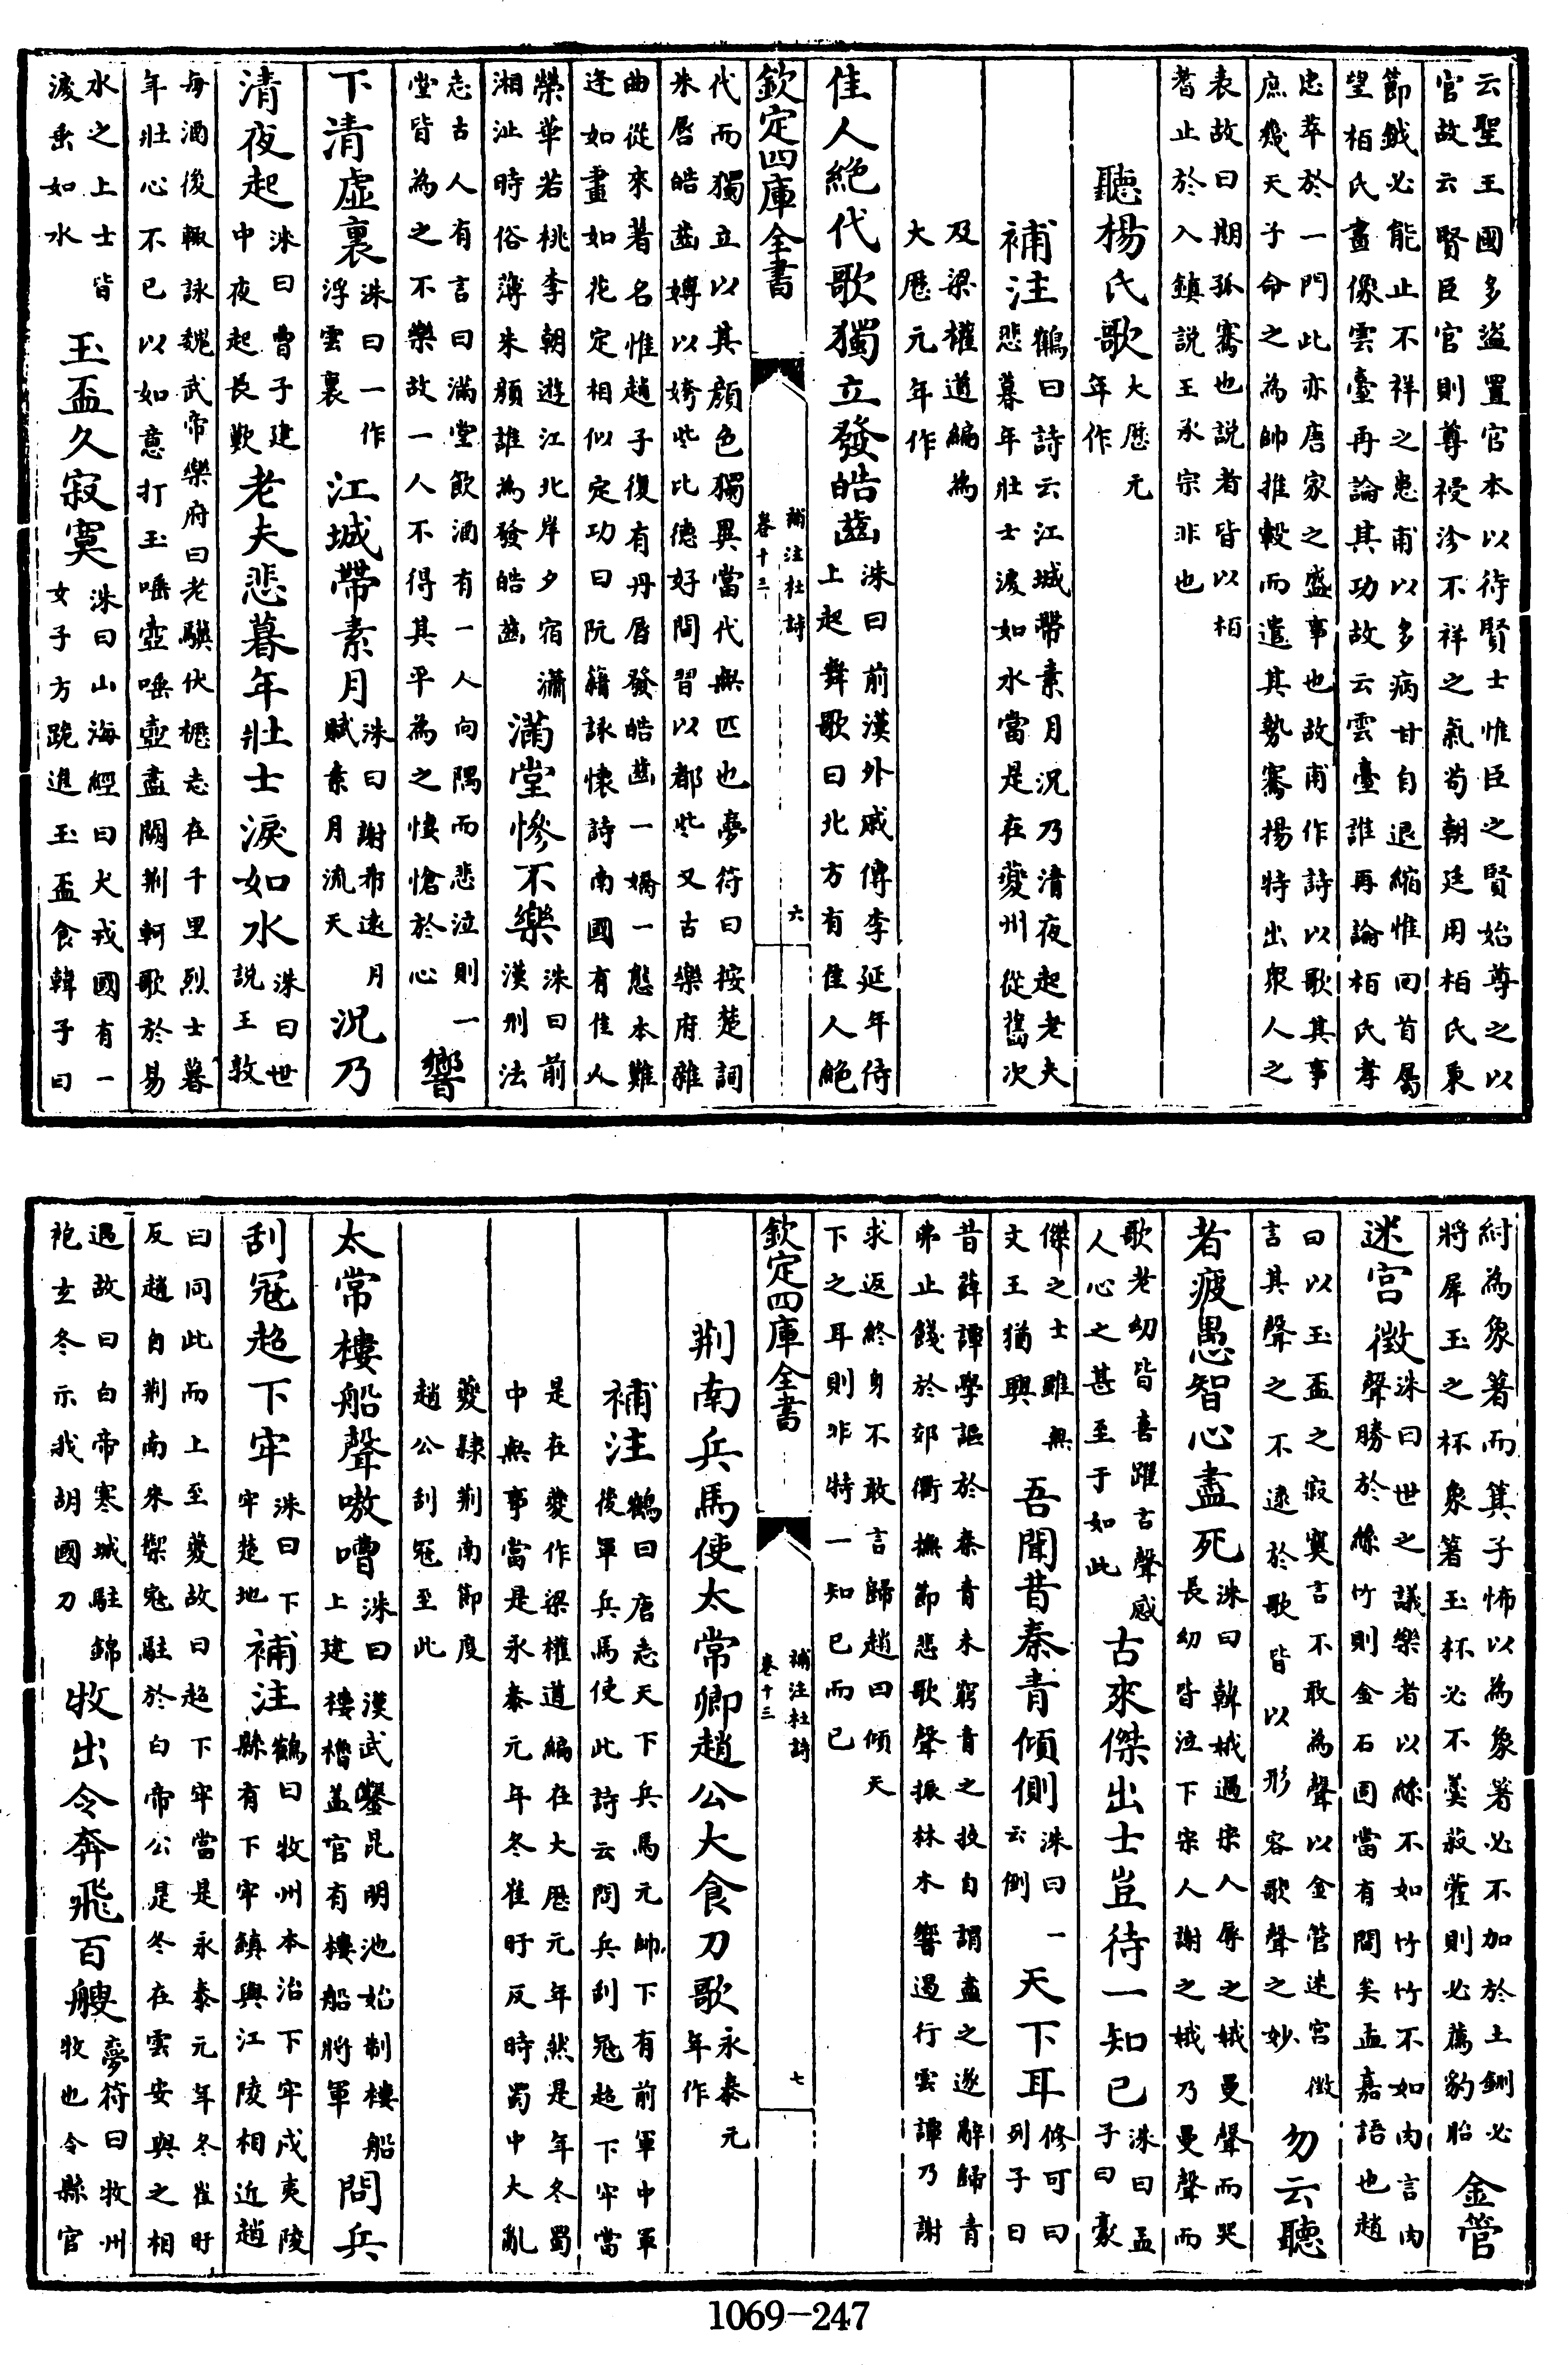 云聖王國多盜置官本以待賢士惟臣之賢始尊之以
官故云賢臣官則尊祲沴不祥之氣茍朝廷用栢氏秉
節鉞必能止不祥之患甫以多病甘自退縮惟回首屬
望栢氏畫像雲臺再論其功故云雲臺誰再論栢氏孝
忠萃於一門此亦唐家之盛事也故甫作詩以歌其事
庶幾天子命之為帥推轂而遣其勢騫揚特出衆人之
表故曰期孤騫也説者皆以栢
耆止於入鎮説王承宗非也
聽楊氏歌大厯元年作
補注鶴曰詩云江城帶素月況乃清夜起老夫悲暮年壯士淚如水當是在夔州從舊次
及梁權道編為
大厯元年作
佳人絶代歌獨立發皓齒洙曰前漢外戚傳李延年侍上起舞歌曰北方有佳人絶
欽定四庫全書 補注杜詩 卷十三 六
代而獨立以其顔色獨異當代無匹也夢符曰按楚詞
朱唇皓齒嫭以姱些比德好閒習以都些又古樂府雜
曲從來著名惟趙子復有丹唇發皓齒一嬌一態本難
逢如畫如花定相似定功曰阮籍詠懷詩南國有佳人
榮華若桃李朝遊江北岸夕宿瀟湘沚時俗薄朱顔誰為發皓齒滿堂慘不樂洙曰前漢刑法
志古人有言曰滿堂飲酒有一人向隅而悲泣則一堂皆為之不樂故一人不得其平為之悽愴於心響
下清虚裏洙曰一作浮雲裏江城帶素月洙曰謝希逸月賦素月流天況乃
清夜起洙曰曹子建中夜起長歎老夫悲暮年壯士淚如水洙曰世説王敦
每酒後輙詠魏武帝樂府曰老驥伏櫪志在千里烈士暮
年壯心不已以如意打玉唾壺唾壺盡闕荆軻歌於易
水之上士皆淚垂如水玉盃久寂寞洙曰山海經曰犬戎國有一女子方跪進玉盃食韓子曰
紂為象著而箕子怖以為象著必不加於土鉶必將犀玉之杯象箸玉杯必不羹菽藿則必薦豹胎金管
迷宮徵洙曰世之議樂者以絲不如竹竹不如肉言肉聲勝於絲竹則金石固當有間矣孟嘉語也趙
曰以玉盃之寂寞言不敢為聲以金管迷宮徵言其聲之不逮於歌皆以形容歌聲之妙勿云聽
者疲愚智心盡死洙曰韓娥過宋人辱之娥曼聲而哭長幼皆泣下宋人謝之娥乃曼聲而
歌老幼皆喜躍言聲感人心之甚至于如此古來傑出士豈待一知已洙曰孟子曰豪
傑之士雖無文王猶興吾聞昔秦青傾側洙曰一云倒天下耳修可曰列子曰
昔薛譚學謳於秦青未窮青之技自謂盡之遂辭歸青
弗止餞於郊衢撫節悲歌聲振林木響遏行雲譚乃謝
求返終身不敢言歸趙曰傾天
下之耳則非特一知已而已
欽定四庫全書 補注杜詩 卷十三 七
荆南兵馬使太常卿趙公大食刀歌永泰元年作
補注鶴曰唐志天下兵馬元帥下有前軍中軍後軍兵馬使此詩云問兵刮冦超下牢當
是在夔作梁權道編在大厯元年然是年冬蜀
中無事當是永泰元年冬崔旰反時蜀中大亂
夔隸荆南節度
趙公刮冦至此
太常樓船聲嗷嘈洙曰漢武鑿昆明池始制樓船上建樓櫓盖官有樓船將軍問兵
刮冦超下牢洙曰下牢楚地補注鶴曰牧州本治下牢戍夷陵縣有下牢鎮與江陵相近趙
曰問此而上至夔故曰超下牢當是永泰元年冬崔旰
反趙自荆南來禦冦駐於白帝公是冬在雲安與之相
遇故曰白帝寒城駐錦袍玄冬示我胡國刀牧出令奔飛百艘夢符曰牧州牧也令縣官
1069-247